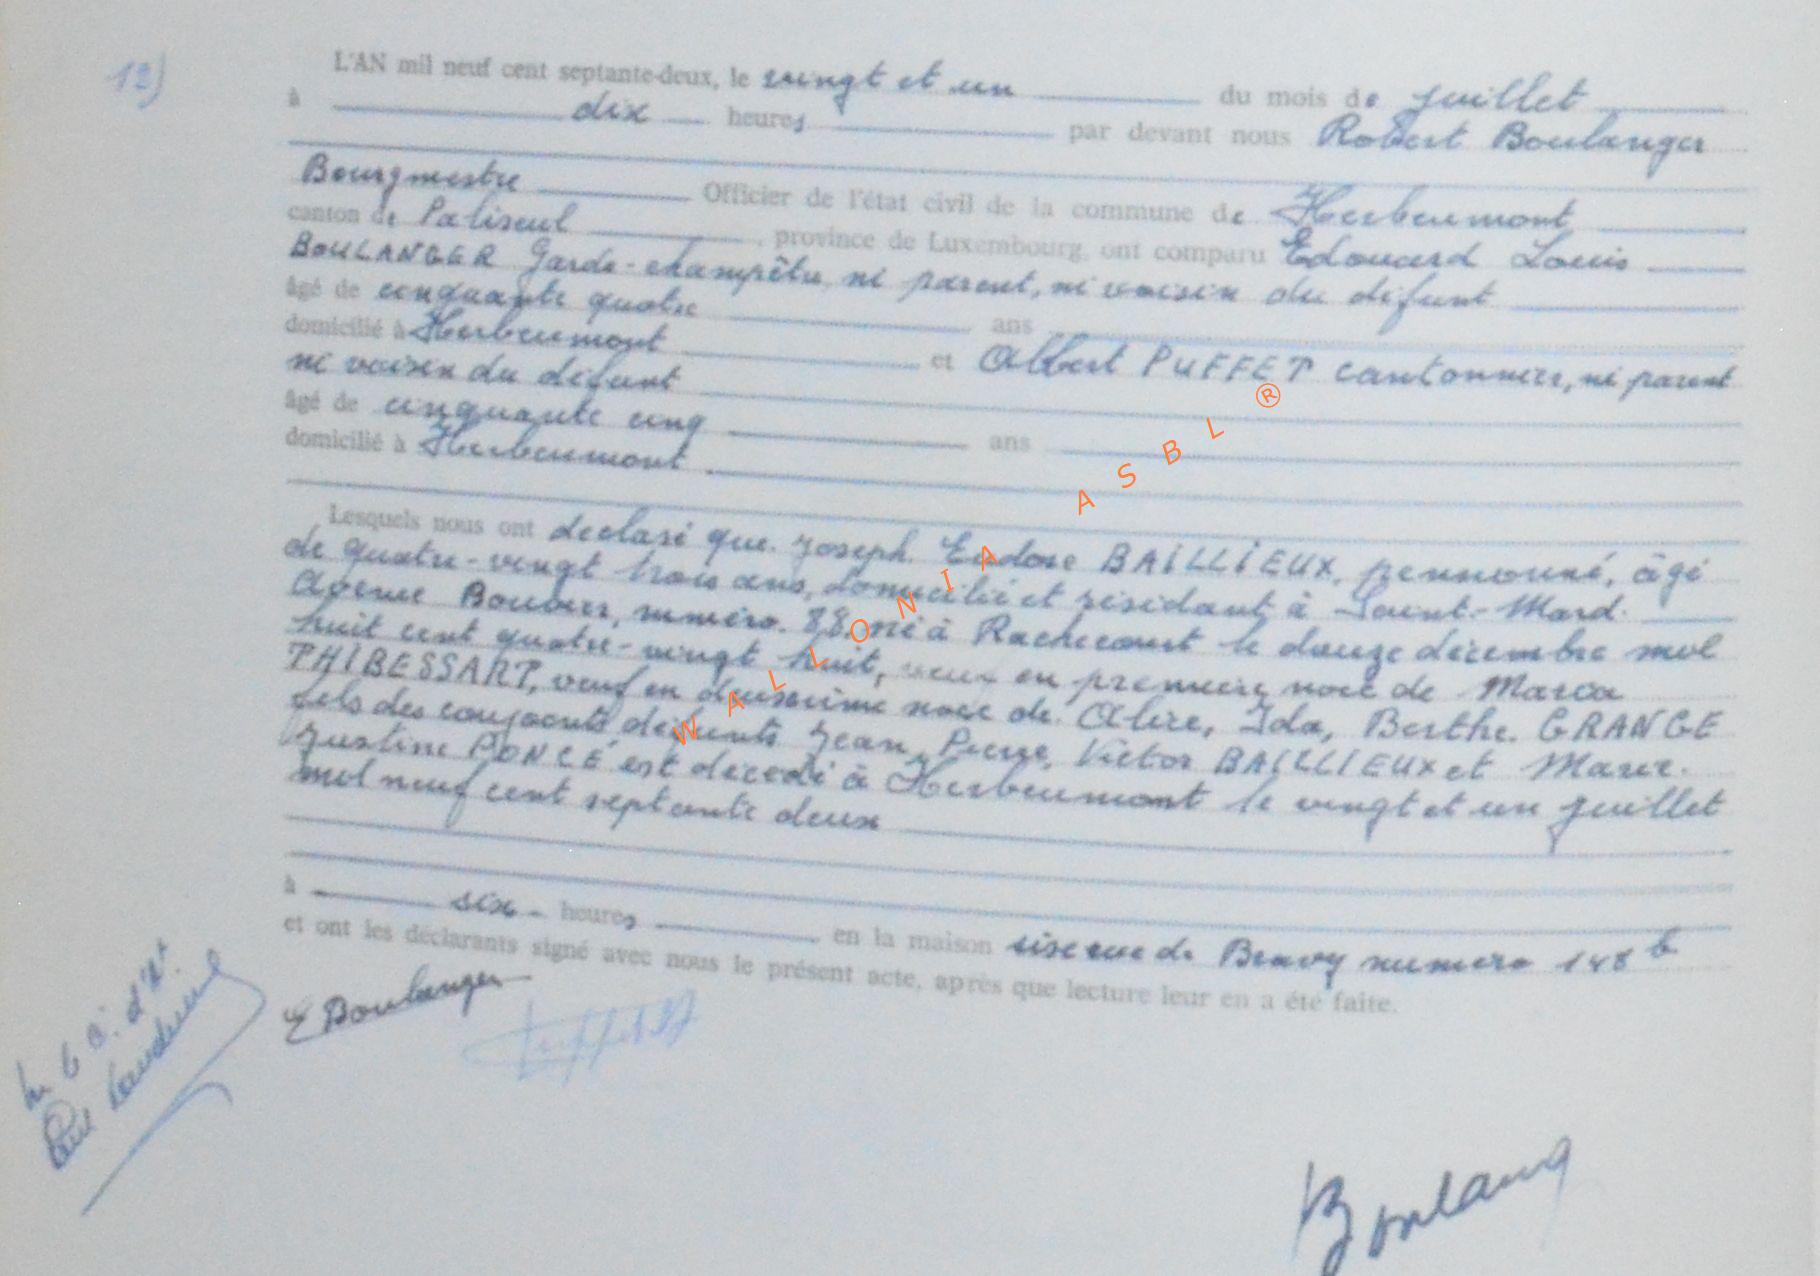 12)
L'AN mil neuf cent septante-deux, le vingt et un du mois de juillet
à dix heures par devant nous Robert Boulanger
Bourgmestre Officier de l'état civil de la commune de Herbeumont
canton de Paliseul, province de Luxembourg, ont comparu Edouard Louis
BOULANGER Garde-champêtre, ni parent, ni voisin du défunt
âgé de cinquante quatre ans
domicilié à Herbeumont et Albert PUFFET cantonnier, ni parent
ni voisin du défunt
âgé de cinquante cinq ans
domicilié à Herbeumont
Lesquels nous ont déclaré que Joseph BAILLIEUX, pensionné, âgé
de quatre-vingt trois ans, domicilié et résidant à Saint-Mard.
Avenue Bouvier, numéro 88, né à Rachecourt le douze décembre mil
huit cent quatre-vingt huit, veuf en première noce de Maria
THIBESSART, veuf en deuxième noce de Alice, Ida, Berthe GRANGE
fils des conjoints défunts Jean, Pierre, Victor BAILLIEUX et Marie.
Justine PONCÉ est décédé à Herbeumont le vingt et un juillet
mil neuf cent septante deux
à six heures en la maison sise rue de Bravy numéro 148 b
et ont les déclarants signé avec nous le présent acte, après que lecture leur en a été faite.
E Boulanger
Boulang
WALLONIA ASBL ®